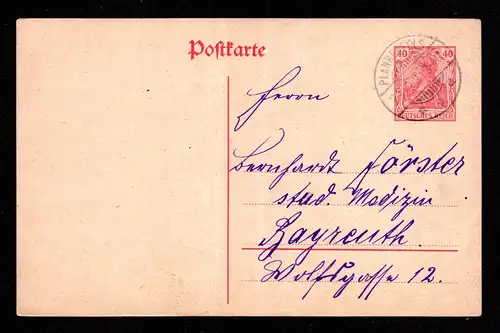 Postkarte
40 40
DEUTSCHES REICH
Herrn
Bernhardt Förster
stud. Medizin
Bayreuth
Wolfsgasse 12.